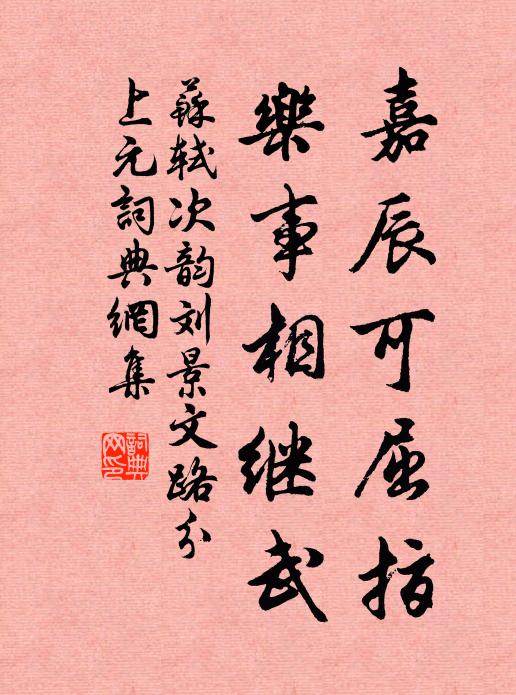 嘉辰可屈指
樂事相继武
蘇軾次韵刘景文路分
上元詞典網集
詞典网印